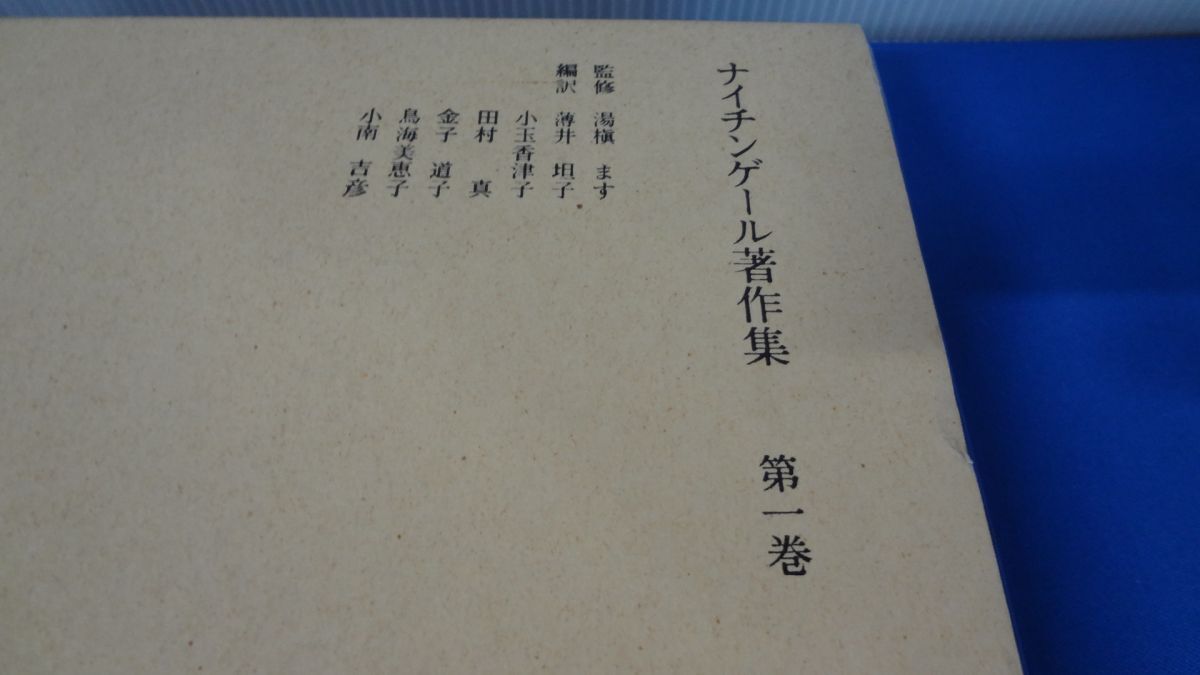 ナイチンゲール著作集 第一巻
監修 湯槇 ます
編訳 薄井 坦子
小玉香津子
田村 真
金子 道子
鳥海美恵子
小南 吉彦